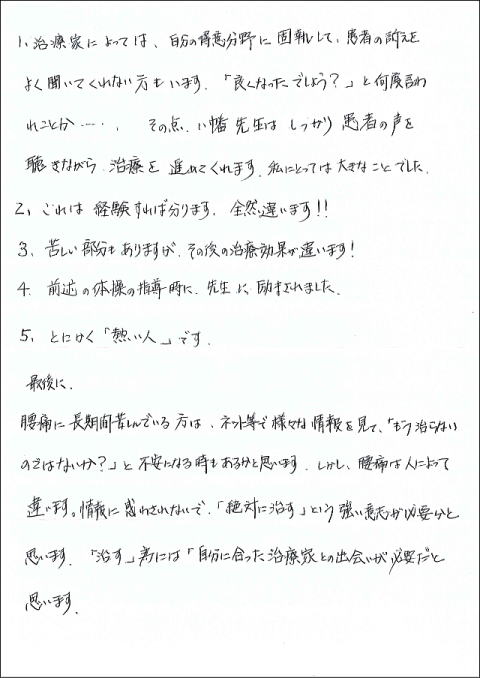 1、治療家によっては、自分の得意分野に固執して、患者の訴えを
よく聞いてくれない方もいます。「良くなったでしょう?」と何度言わ
れことか……。その点、八幡先生はしっかり患者の声を
聴きながら、治療を進めてくれます。私にとっては大きなことでした。
2、これは経験すれば分ります。全然違います!!
3、苦しい部分もありますが、その後の治療効果が違います!
4、前述の体操の指導時に、先生に励まされました。
5、とにかく「熱い人」です。
最後に、
腰痛に長期間苦しんでいる方は、ネット等で様々な情報を見て、「もう治らない
のではないか?」と不安になる時もあるかと思います。しかし、腰痛は人によって
違います。情報に惑わされないで、「絶対に治す」という強い意志が必要かと
思います。「治す」為には「自分に合った治療家との出会いが必要だと
思います。